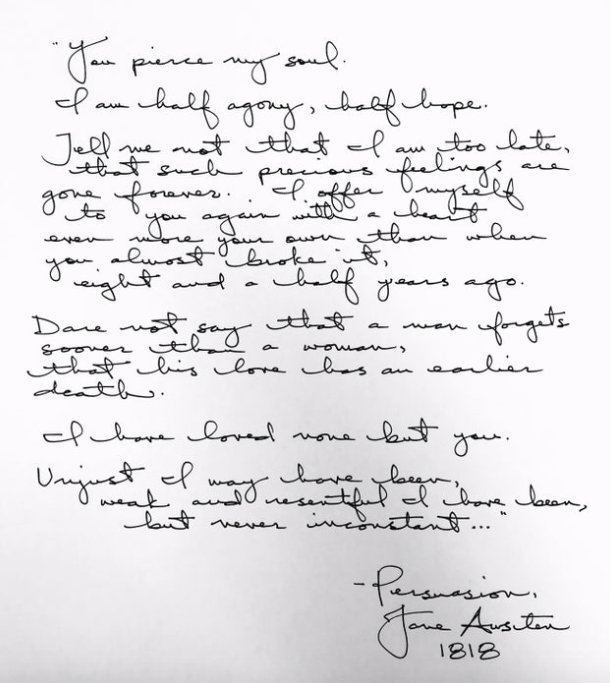 "You pierce my soul.
I am half agony, half hope.
Tell me not that I am too late,
that such precious feelings are
gone forever. I offer myself
to you again with a heart
even more your own than when
you almost broke it,
eight and a half years ago.
Dare not say that a man forgets
sooner than a woman,
that his love has an earlier
death.
I have loved none but you.
Unjust I may have been,
weak and resentful I have been,
but never inconstant..."
- Persuasion,
Jane Austen
1818